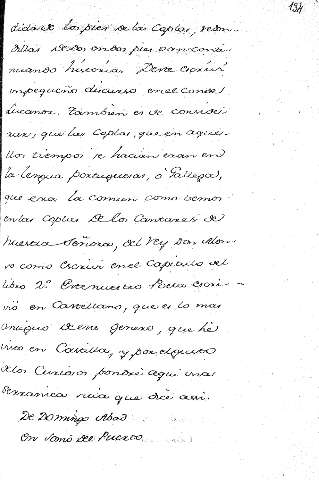 194
dictado los pies de las Coplas, redon-
dillas
nuando historias Deve escrivir
un pequeño discurso en el Conde
Lucanor. Tambien es de conside-
rar, que las Coplas, que en aque-
llos tiempos se hacian eran en
la lengua portuguesa, ò Gallega,
que era la comun como vemos
en las coplas De los Cantares de
Nuestra Señora, del Rey Don Alon-
so como escriví en el Capitulo del
libro 2º Este nuestro Poeta escri-
vió en Castellano, que es lo mas
antiguo de este genero, que hè
visto en Castilla, y por el gusto
de los Curiosos pondrè aqui una
Serranica suia que dice asi.
De Domingo Abad
En somo del Puerto